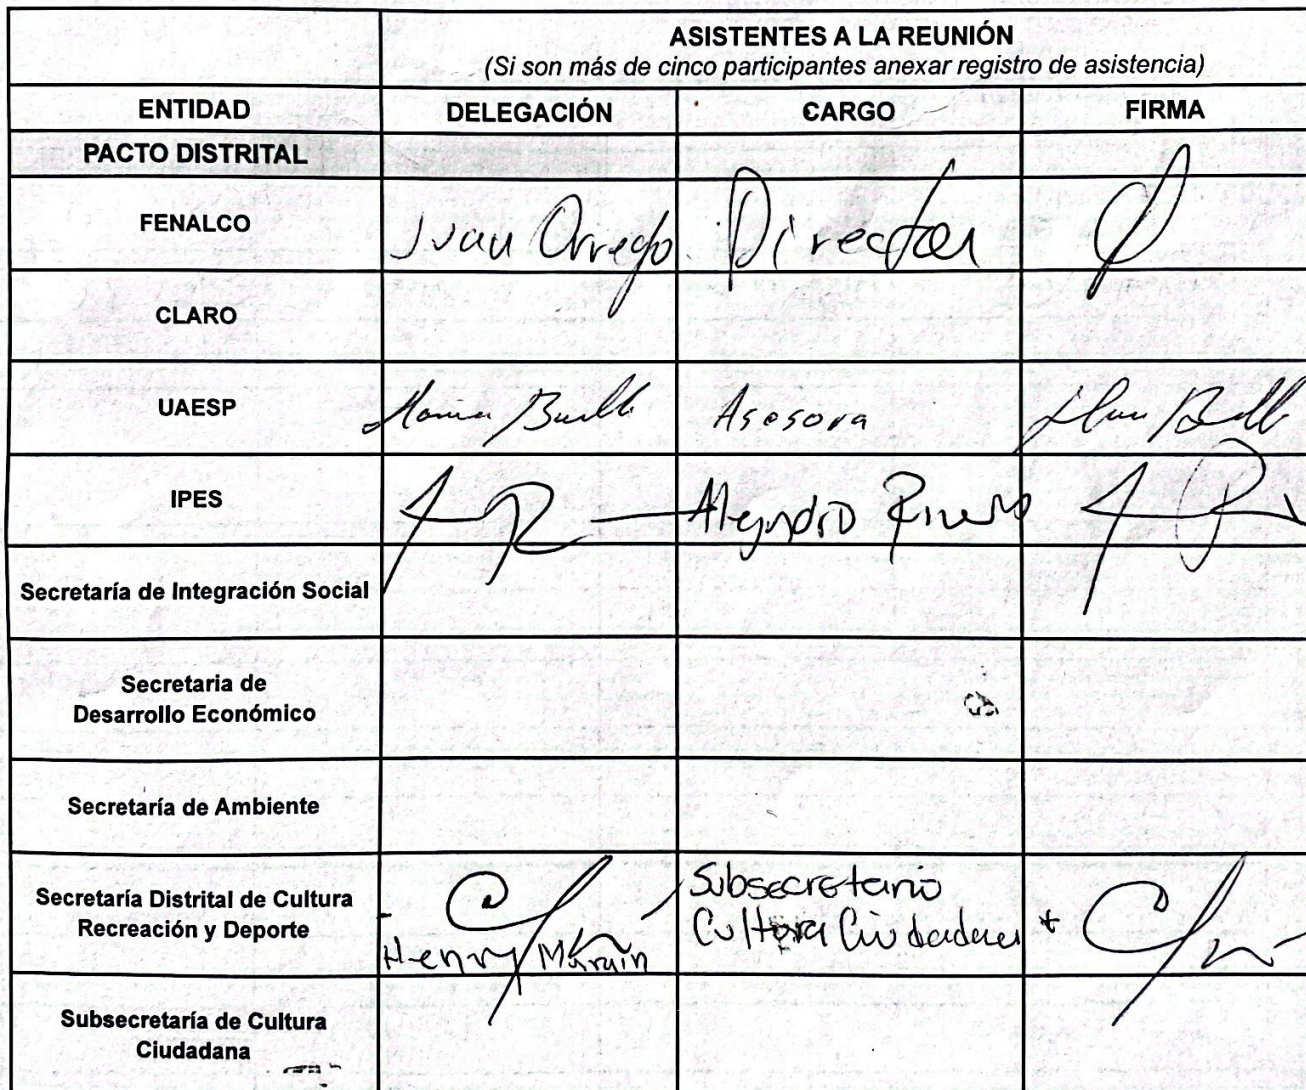 ASISTENTES A LA REUNIÓN
(Si son más de cinco participantes anexar registro de asistencia)
ENTIDAD DELEGACIÓN CARGO FIRMA
PACTO DISTRITAL
FENALCO Juan Orrego Director
CLARO
UAESP Asesora
IPES Alejandro Rivera
Secretaría de Integración Social
Secretaria de
Desarrollo Económico
Secretaría de Ambiente
Secretaría Distrital de Cultura
Recreación y Deporte
Henry Murrain
Subsecretario
Cultura Ciudadana
Subsecretaría de Cultura
Ciudadana